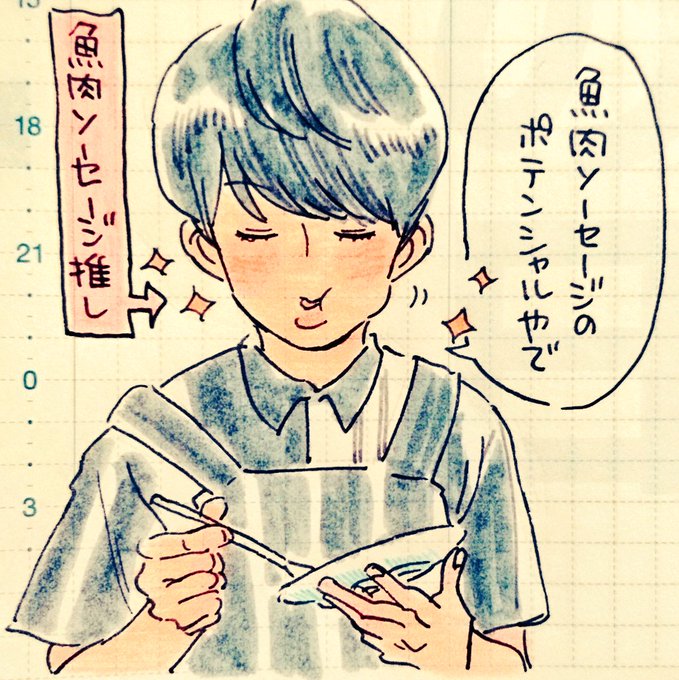 15
18
21
0
3
魚肉ソーセージの
ポテンシャルやで
魚肉ソーセージ推し